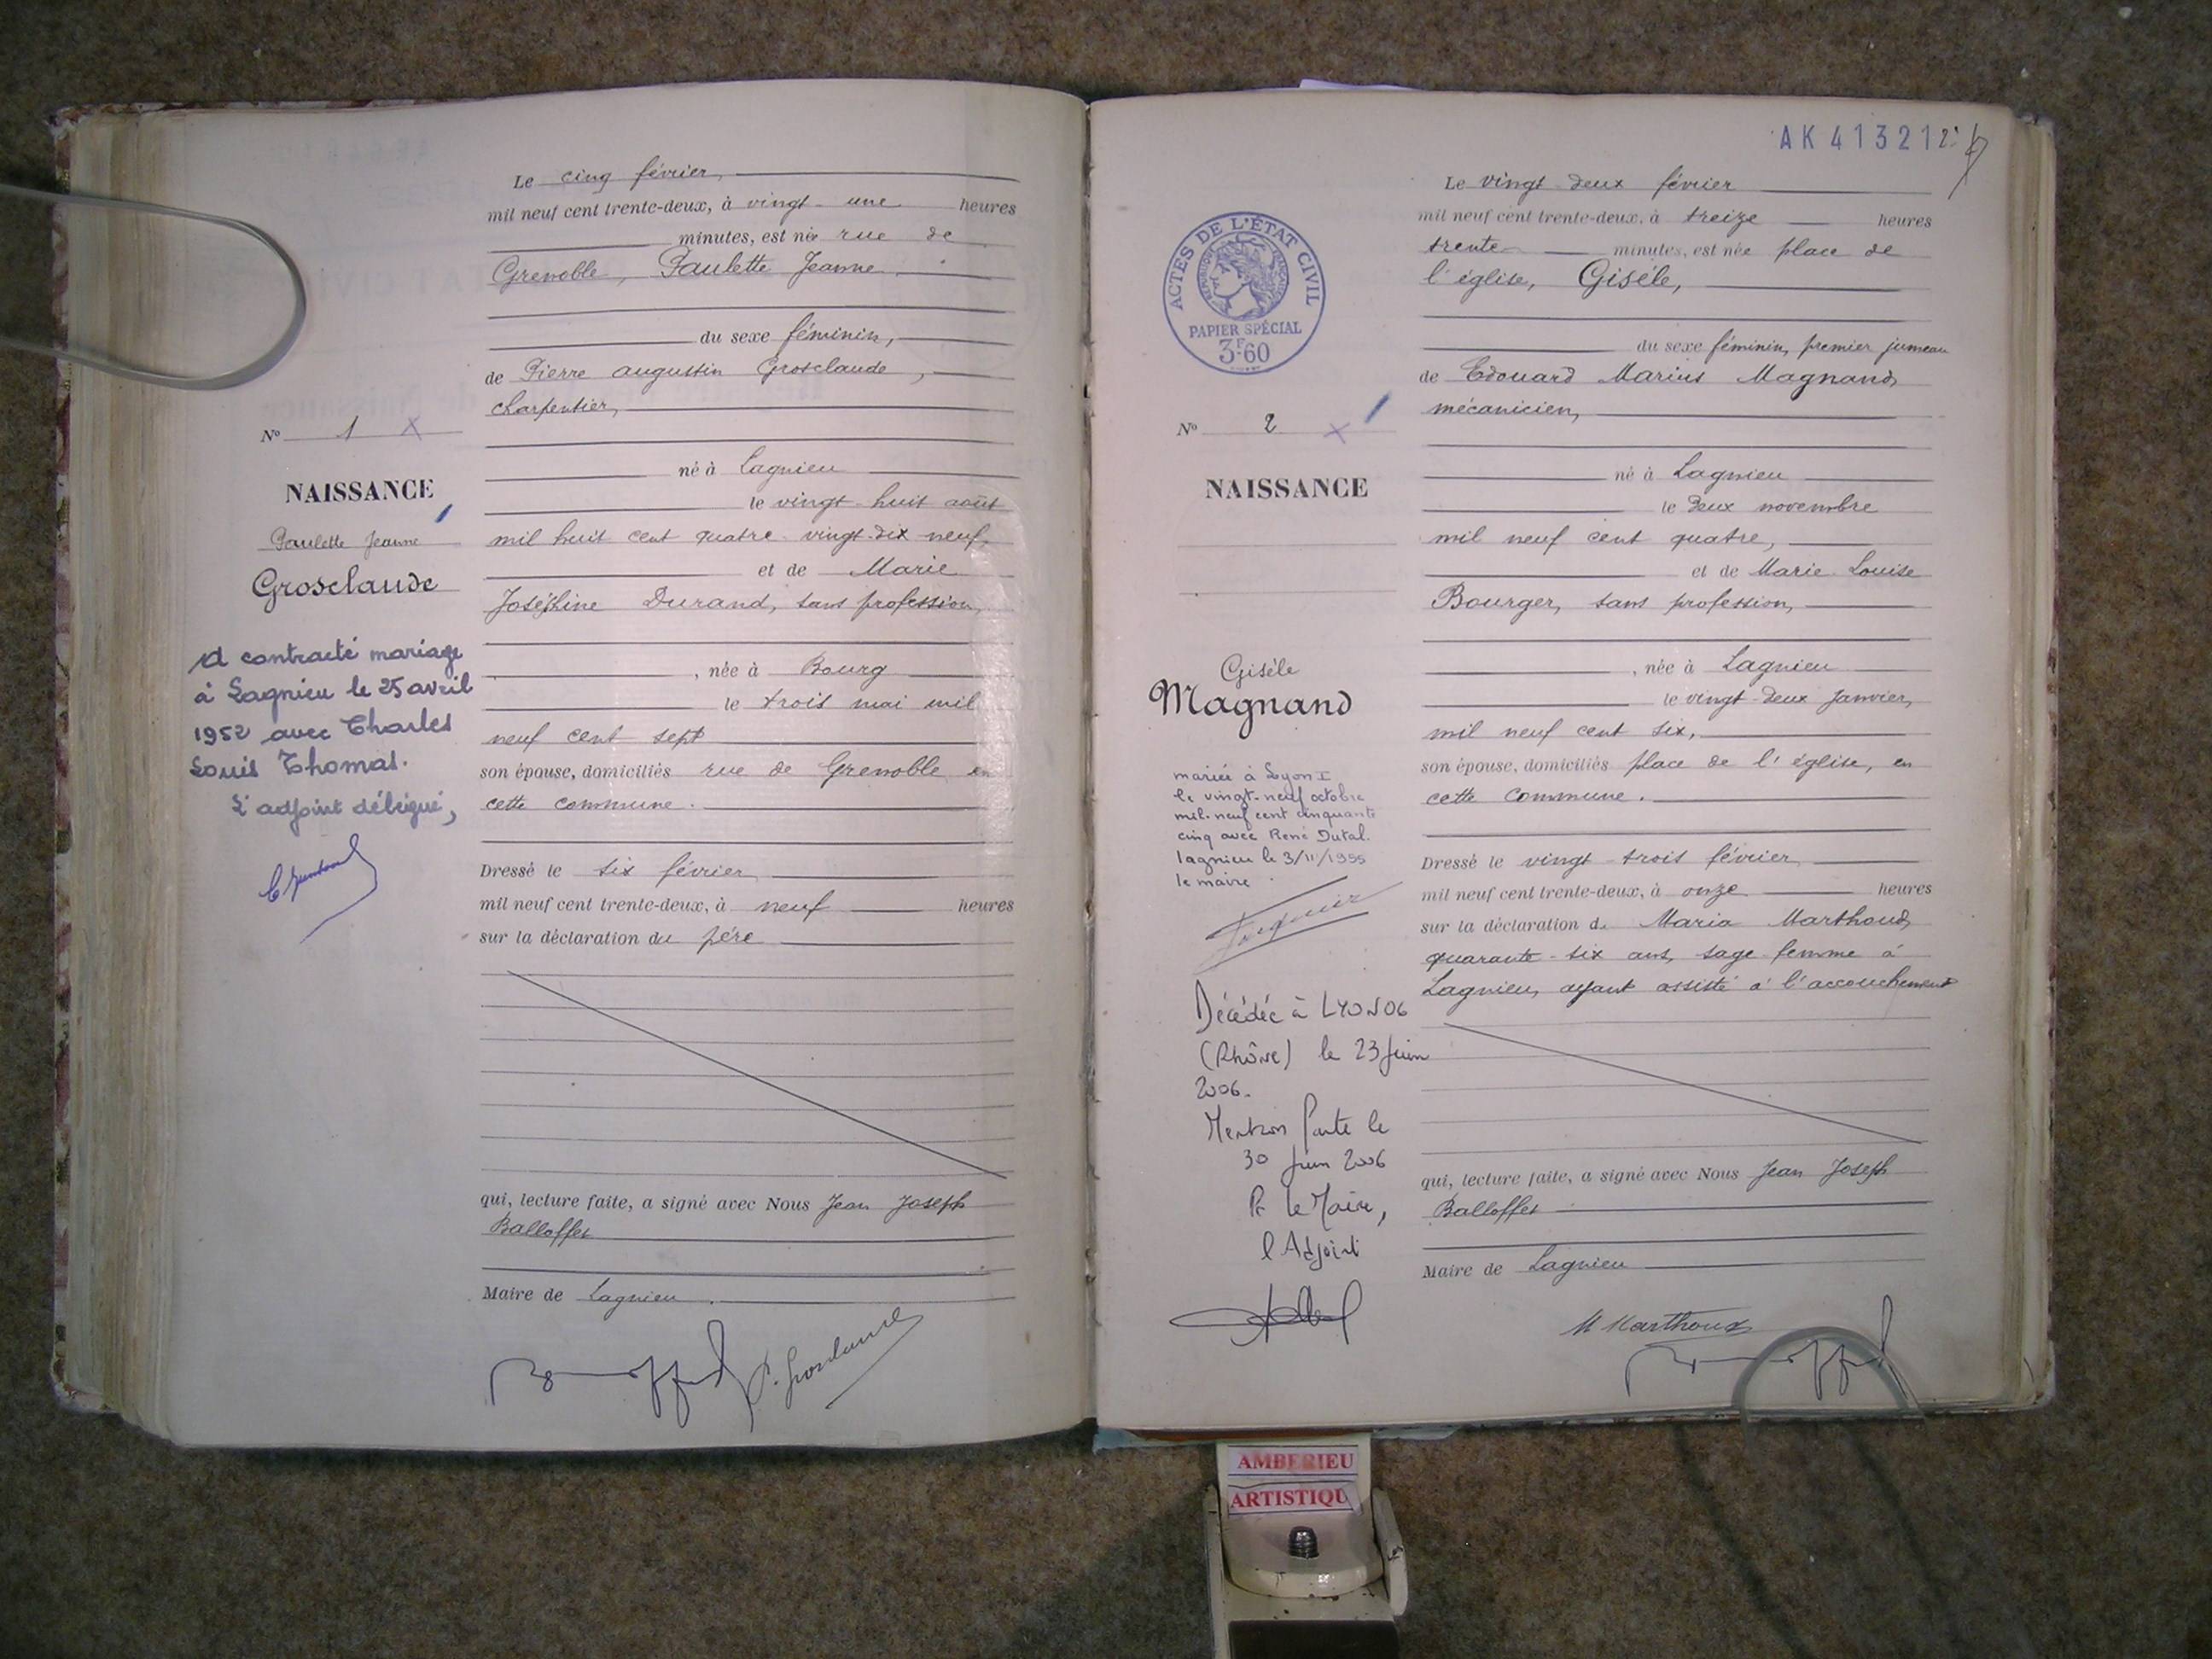 Le cinq février,
mil neuf cent trente-deux, à vingt-une heures
minutes, est née rue de
Grenoble, Paulette Jeanne
du sexe féminin,
de Pierre Augustin Grosclaude,
charpentier,
né à Lagnieu
le vingt-huit août
mil huit cent quatre-vingt-dix neuf,
et de Marie
Joséphine Durand, sans profession,
, née à Bourg
le trois mai mil
neuf cent sept
son épouse, domiciliés rue de Grenoble en
cette commune.
Dressé le six février
mil neuf cent trente-deux, à neuf heures
sur la déclaration du père
qui, lecture faite, a signé avec Nous Jean Joseph
Balloffet
Maire de Lagnieu.
P. Grosclaude
N° 1 X
NAISSANCE
Paulette Jeanne
Grosclaude
A contracté mariage
à Lagnieu le 25 avril
1952 avec Charles
Louis Thomas.
L'adjoint délégué,
AK 413212
Le vingt-deux février
mil neuf cent trente-deux, à treize heures
trente minutes, est née place de
l'église, Gisèle,
du sexe féminin, premier jumeau
de Edouard Marius Magnand,
mécanicien,
né à Lagnieu
le deux novembre
mil neuf cent quatre,
et de Marie Louise
Bourger, sans profession,
, née à Lagnieu
le vingt-deux janvier,
mil neuf cent six,
son épouse, domiciliés place de l'église, en
cette commune.
Dressé le vingt-trois février
mil neuf cent trente-deux, à onze heures
sur la déclaration de Maria Marthoud,
quarante-six ans, sage-femme à
Lagnieu, ayant assisté à l'accouchement
qui, lecture faite, a signé avec Nous Jean Joseph
Balloffet
Maire de Lagnieu
M Marthoud
ACTES DE L'ÉTAT CIVIL
RÉPUBLIQUE FRANÇAISE
PAPIER SPÉCIAL
3F60
N° 2 X
NAISSANCE
Gisèle
Magnand
mariée à Lyon I
le vingt-neuf octobre
mil-neuf cent cinquante
cinq avec René Dutal.
Lagnieu le 3/11/1955
le maire
Décédée à LYON 06
(Rhône) le 23 juin
2006.
Mention portée le
30 juin 2006
Pr le Maire,
l'Adjoint
AMBERIEU
ARTISTIQU